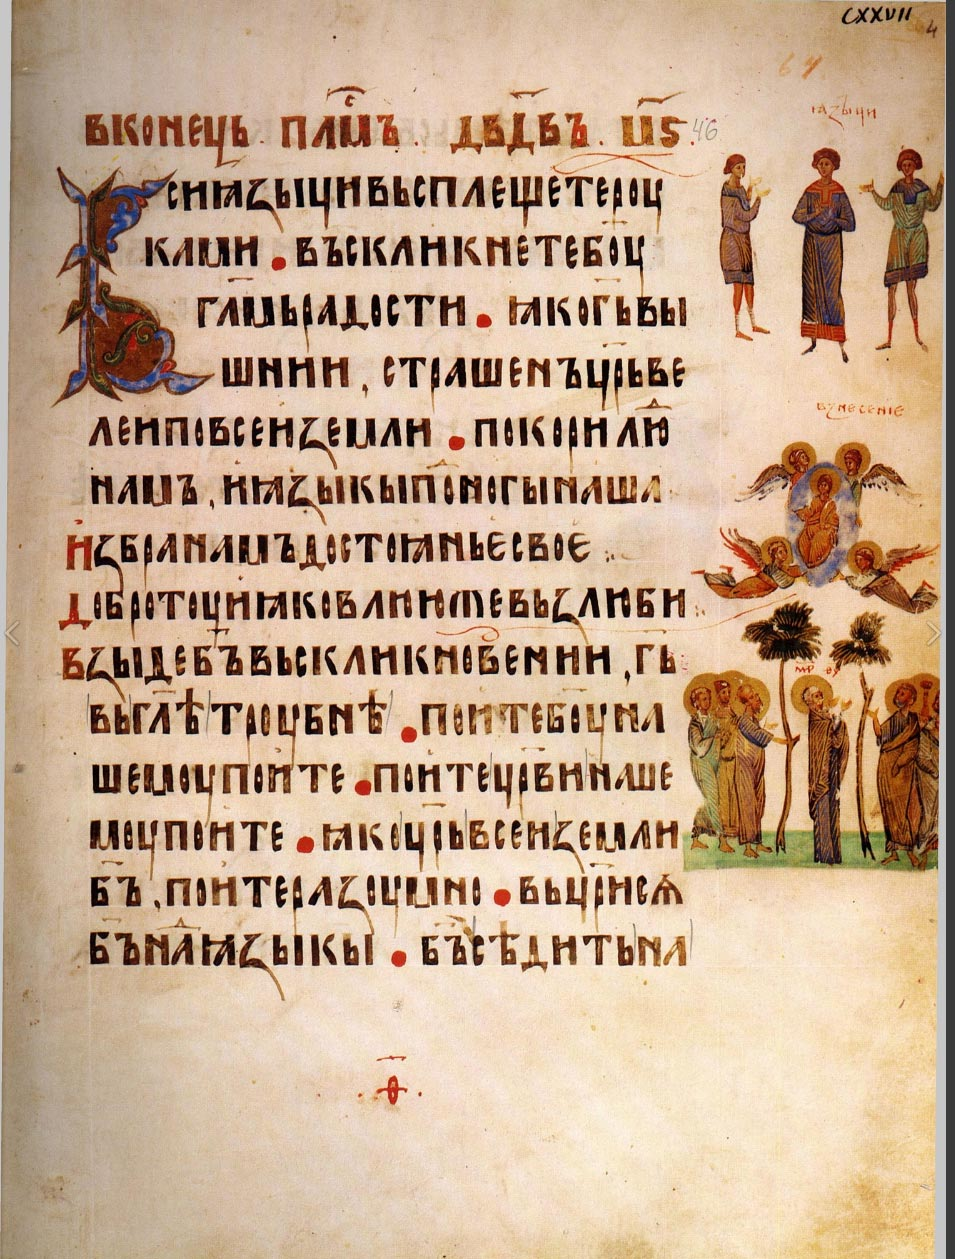 CXXVII
4
64
вконець. пл҃мъ. дв҃дъ. м҃ѕ. 46
ꙗꙁꙑци
Вси ꙗꙁыци въсплещѣте роу
ками. въскликнѣте боу
гл҃мь радости. ꙗко гь вы
шнии, страшенъ цр҃ь ве
леи по всеи ꙁемли. покори лю҃
намъ, и ꙗꙁыкы по ногы наша
иꙁбра намъ достоꙗнье свое
доброту иꙗковлю юже вьꙁлюби
вꙁыде б҃ъ въскликновении, гь
въ глѣ троубнѣ. поите боу на
шемоу поите. поите цр҃ви наше
моу поите. ꙗко цр҃ь всеи ꙁемли
б҃ъ, поите раꙁоумно. вьцр҃исѧ
б҃ъ на ꙗꙁыкы. б҃ъ сѣдить на
вꙁнесение
МР ѲУ
ѳ҃